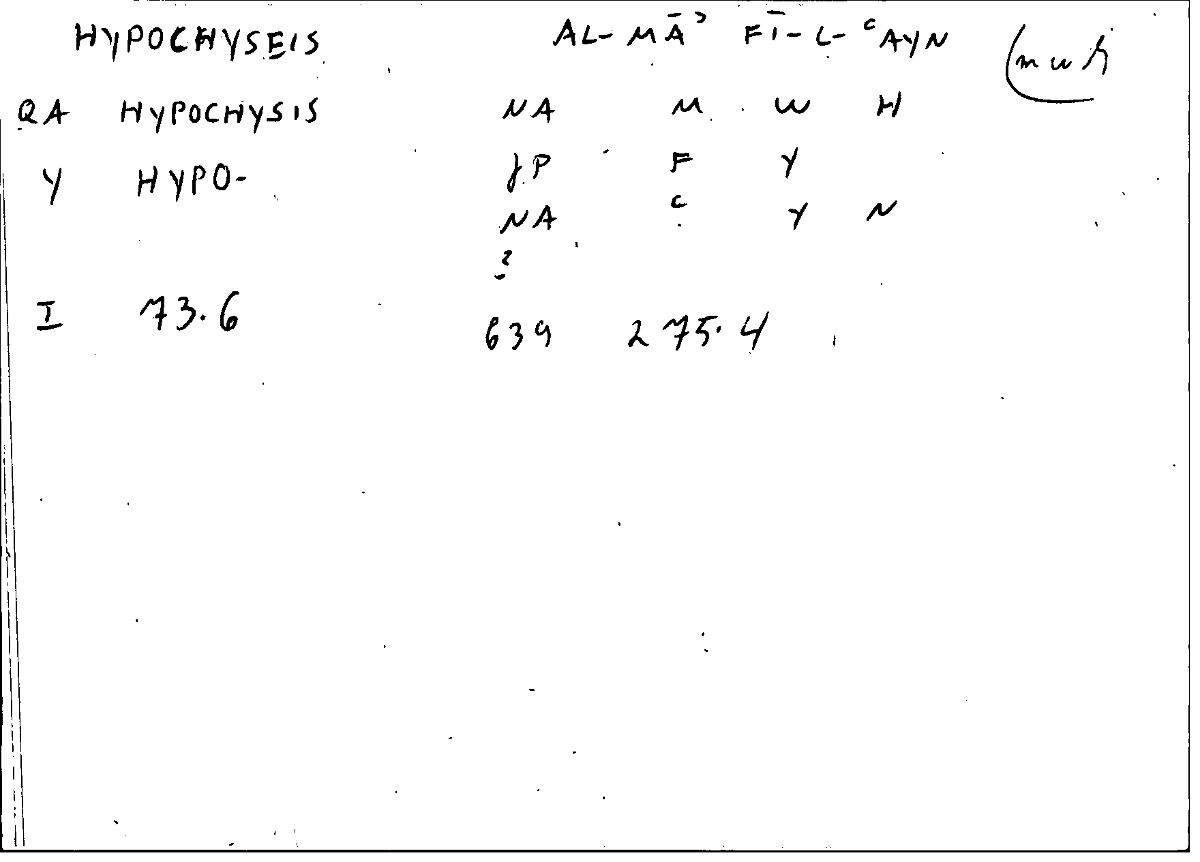 HYPOCHYSEIS AL-MĀʾ FĪ-L-ʿAYN (mwh
QA HYPOCHYSIS NA M W H
Y HYPO- JP F Y
NA ʿ Y N
2
I 73.6 639 275.4